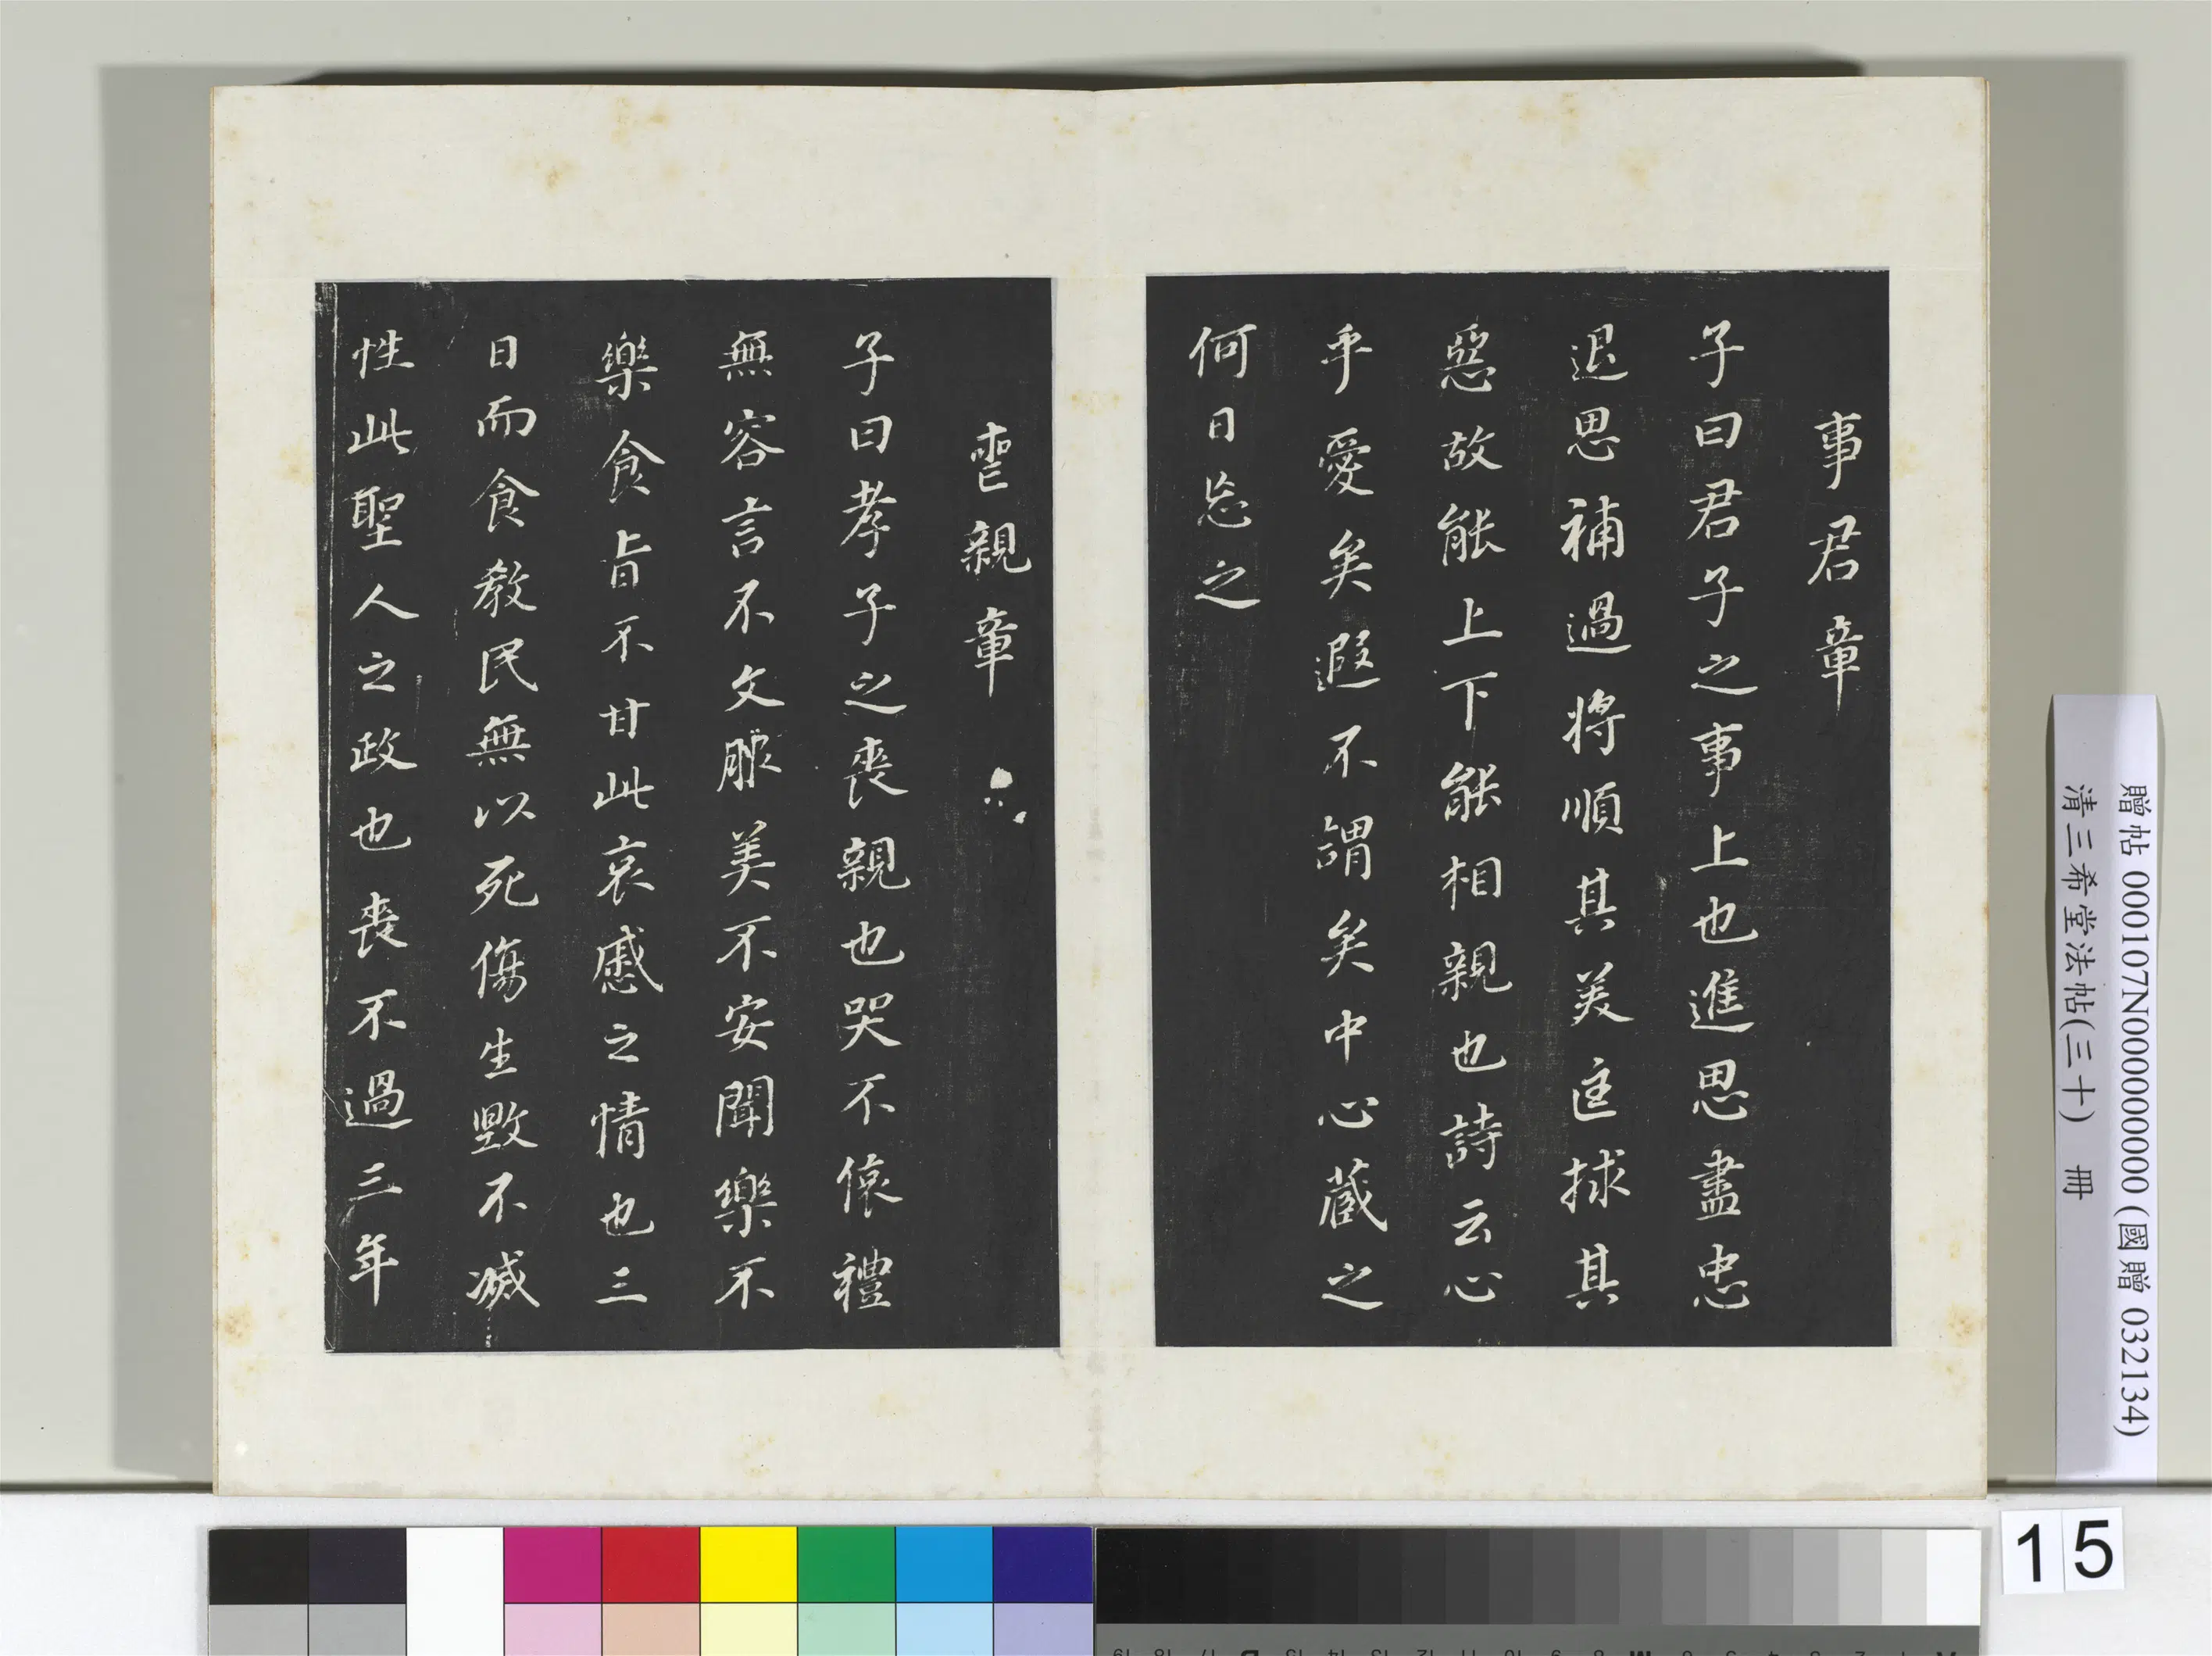 事君章
子曰君子之事上也進思盡忠
退思補過將順其美匡捄其
惡故能上下能相親也詩云心
乎愛矣遐不謂矣中心藏之
何日忘之
喪親章
子曰孝子之喪親也哭不偯禮
無容言不文服美不安聞樂不
樂食旨不甘此哀慼之情也三
日而食教民無以死傷生毀不滅
性此聖人之政也喪不過三年
贈帖 000107N000000000 (國贈 032134)
清三希堂法帖(三十) 冊
15